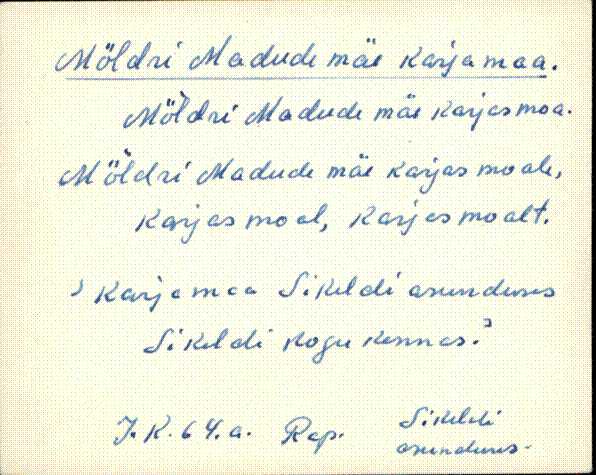 Möldri Madude mäe karjamaa.
Möldri Madude mäe karjasmoa.
Möldri Madude mäe karjasmoale,
karjasmoal, karjasmoalt.
karjamaa Sikeldi asunduses
Sikeldi kogukonnas.
J. K. 64. a. Rap. Sikeldi
asunduses.